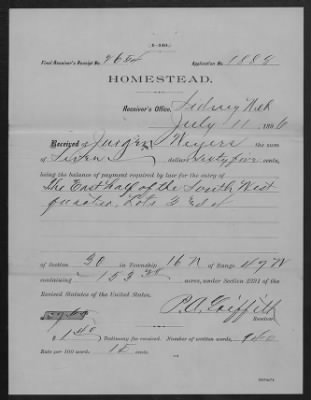 (4—140.)
Final Receiver's Receipt No. 9654 Application No. 1888
HOMESTEAD.
Receiver's Office, Sidney Neb
July 11, 1896
Received of Jurgen Weyers the sum
of Seven dollars sixty five cents,
being the balance of payment required by law for the entry of
The East half of the South West
quarter, Lots 3 and 4
of Section 30 in Township 16 N of Range 49 W
containing 153 acres, under Section 2291 of the
Revised Statutes of the United States.
P. A. Griffith
Receiver.
$7.65
$1.40 Testimony fee received. Number of written words, 960
Rate per 100 words 15 cents.